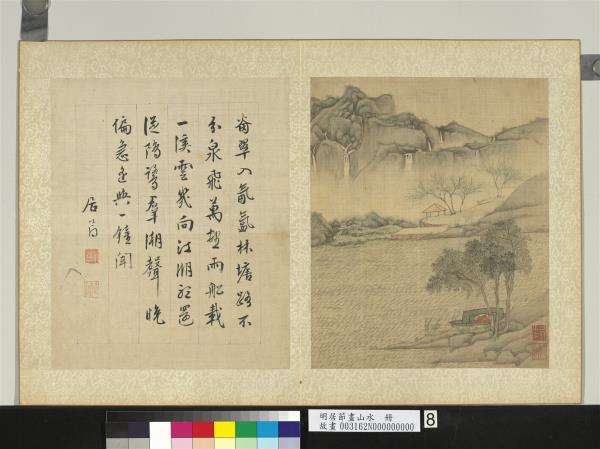 翠入氤氳林塘路不
分泉飛萬壑雨船載
一溪雲 向江湖
從鷗鷺群潮聲晚
偏急遙與一鐘聞
居節
明居節畫山水 冊
故畫 003162N000000000
8